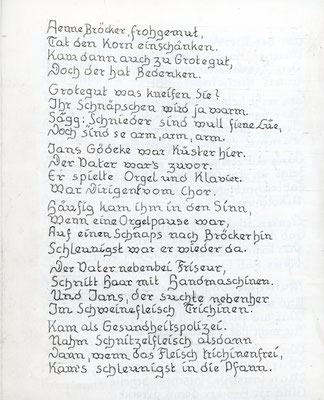 Aenne Bröcker, frohgemut,
Tat den Korn einschänken.
Kam dann auch zu Grotegut,
Doch der hat Bedenken.
Grotegut was kneifen Sie?
Ihr Schnäpschen wird ja warm.
Sägg: Schnieder sind wull fiene Lüe,
Doch sind se arm, arm, arm.
Jans Gödeke war Küster hier.
Der Vater war's zuvor.
Er spielte Orgel und Klavier.
War Dirigent vom Chor.
Häufig kam ihm in den Sinn,
Wenn eine Orgelpause war,
Auf einen Schnaps nach Bröcker hin
Schleunigst war er wieder da.
Der Vater nebenbei Friseur,
Schnitt Haar mit Handmaschinen.
Und Jans, der suchte nebenher
Im Schweinefleisch Trichinen.
Kam als Gesundheitspolizei.
Nahm Schnitzelfleisch alsdann
Dann, wenn das Fleisch trichinenfrei,
Kam's schleunigst in die Pfann.